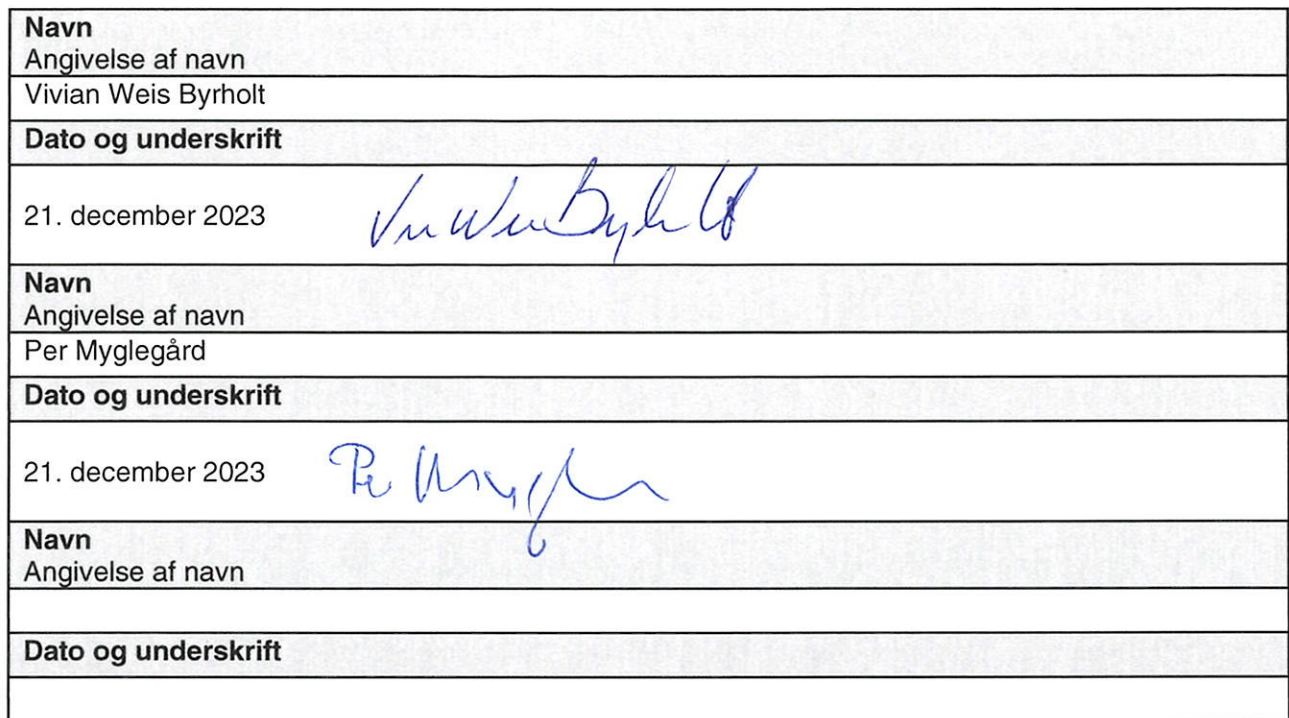 Navn
Angivelse af navn
Vivian Weis Byrholt
Dato og underskrift
21. december 2023
Navn
Angivelse af navn
Per Myglegård
Dato og underskrift
21. december 2023
Navn
Angivelse af navn
Dato og underskrift